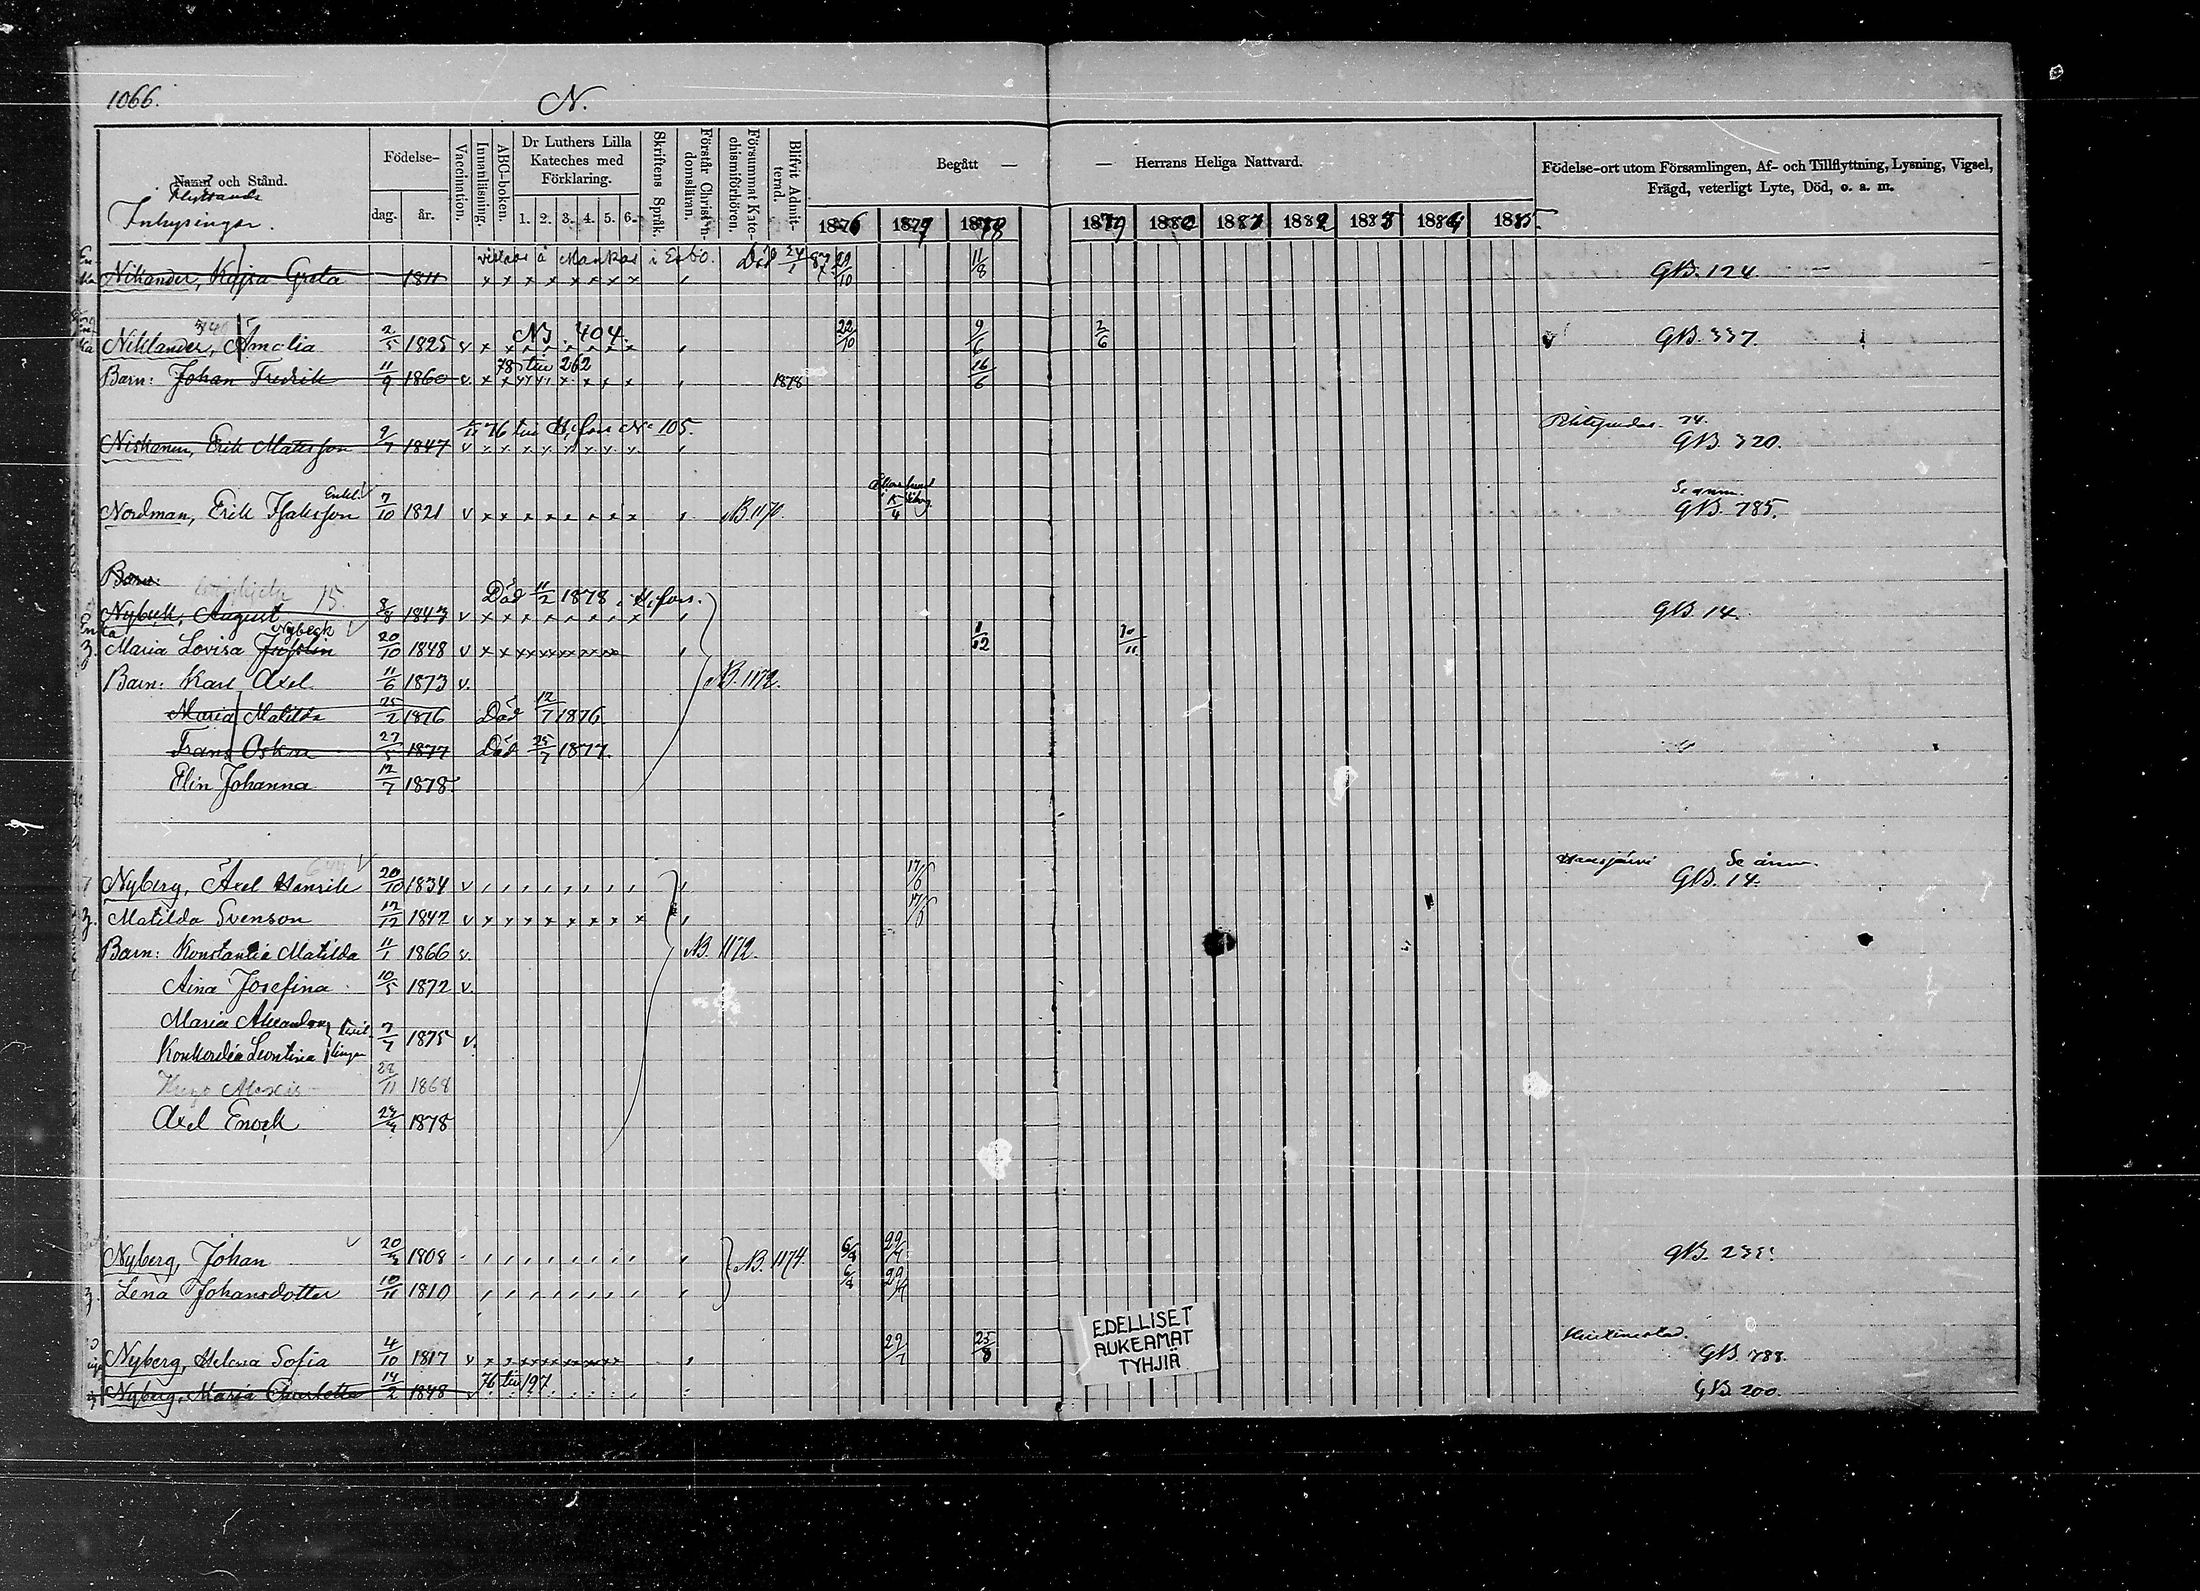 1066.
N.
Namn och Stånd.
Inhysingar.
Födelse-
dag.
år.
Vaccination.
Innanläsning.
ABC-boken.
Dr Luthers Lilla
Kateches med
Förklaring.
1. 2. 3. 4. 5. 6.
Skriftens Språk.
Förstår Christen-
domsläran.
Försummat Kate-
chismiförhören.
Blifvit Admit-
terad.
Begått —
— Herrans Heliga Nattvard.
1876 1877 1878 1879 1880 1881 1882 1883 1884 1885.
Födelse-ort utom Församlingen, Af- och Tillflyttning, Lysning, Vigsel,
Frägd, veterligt Lyte, Död, o. a. m.
vistas å Mankas i Esbo. Död 24/1 87 29/10 11/8
Nikander, Kajsa Greta 1811 x x x x x x x x GB. 124
NB 404.
Niklander, Amalia 2/5 1825 v x x x x x x x x 22/10 9/6 2/6 GB. 337
78 till 262
Barn: Johan Fredrik 11/9 1860 v. x x x x x x x x 1878 16/6
76 till H:fors No 105.
Niskanen, Erik Matsson 2/7 1847 v GB. 320.
Se anm.
Nordman, Erik Isaksson Enkl. 7/10 1821 v x x x x x x x x NB. 1170. 15/4 GB. 785.
Barn:
15.
Död 11/2 1878 i H:fors.
Nybeck, August 8/8 1843 v x x x x x x x x GB. 14.
Nybeck
Maria Lovisa 20/10 1848 v x x x x x x x x 1/12 30/11
Barn: Karl Axel 11/6 1873 v. NB. 1172.
Maria Matilda 25/2 1876 Död 12/7 1876
Frans Oskar 27/5 1877 Död 25/7 1877.
Elin Johanna 12/7 1878
Se anm.
Nyberg, Axel Henrik 20/10 1834 v 17/6 GB. 14.
Matilda Svenson 12/12 1842 v x x x x x x x x 17/6
Barn: Konstantia Matilda 11/1 1866 v. NB. 1172.
Aina Josefina 10/5 1872 v.
Maria Alexandra } Tvil-
Konkordia Leontina } lingar 7/7 1875 v.
Hugo Alexis 28/11 1868
Axel Enock 1878
Nyberg, Johan 1808 NB. 1174. 6/8
Lena Johansdotter 10/11 1810 6/8
Kristinestad.
Nyberg, Helena Sofia 4/10 1817 v x x x x x x x x 29/7 25/8 GB. 788.
76 till 197
Nyberg, Maria Charlotta 14/2 1848 v GB. 200.
EDELLISET
AUKEAMAT
TYHJIÄ